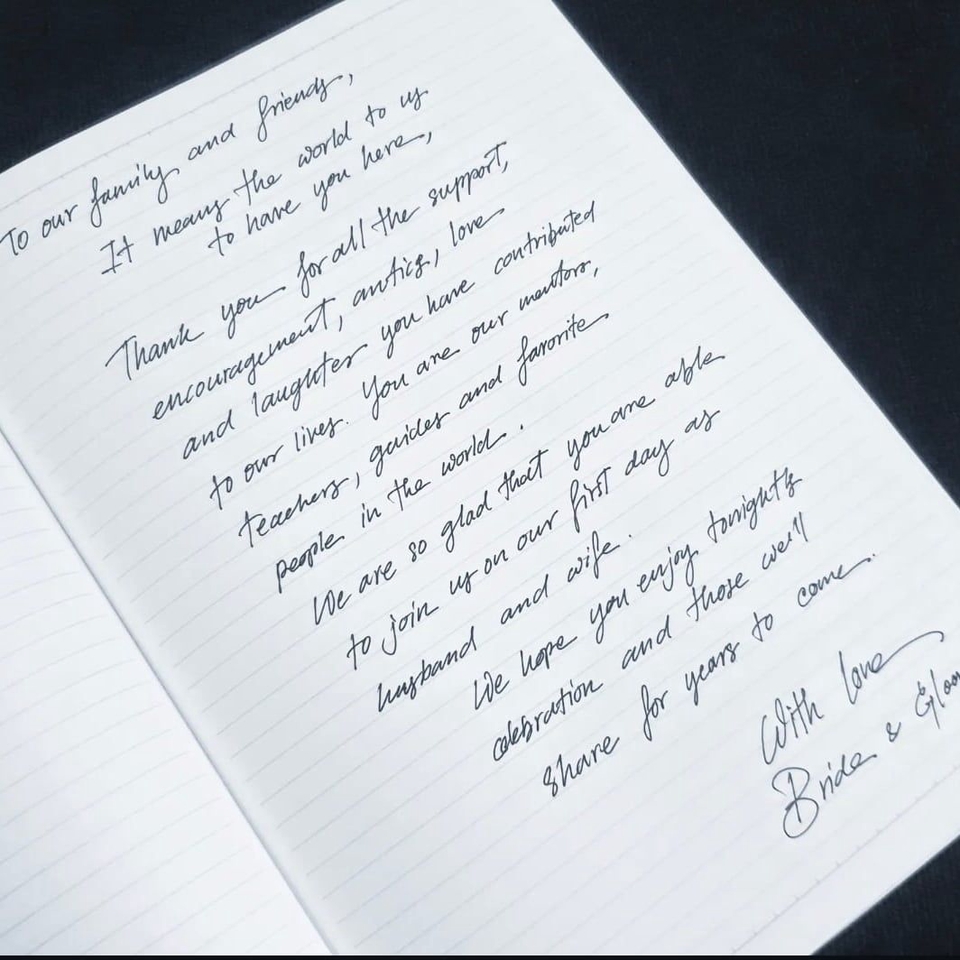 To our family and friends,
It means the world to us
to have you here,
Thank you for all the support,
encouragement, antics, love
and laughter you have contributed
to our lives. You are our mentors,
teachers, guides and favorite
people in the world.
We are so glad that you are able
to join us on our first day as
husband and wife.
We hope you enjoy tonights
celebration and those we'll
share for years to come.
With love
Bride &